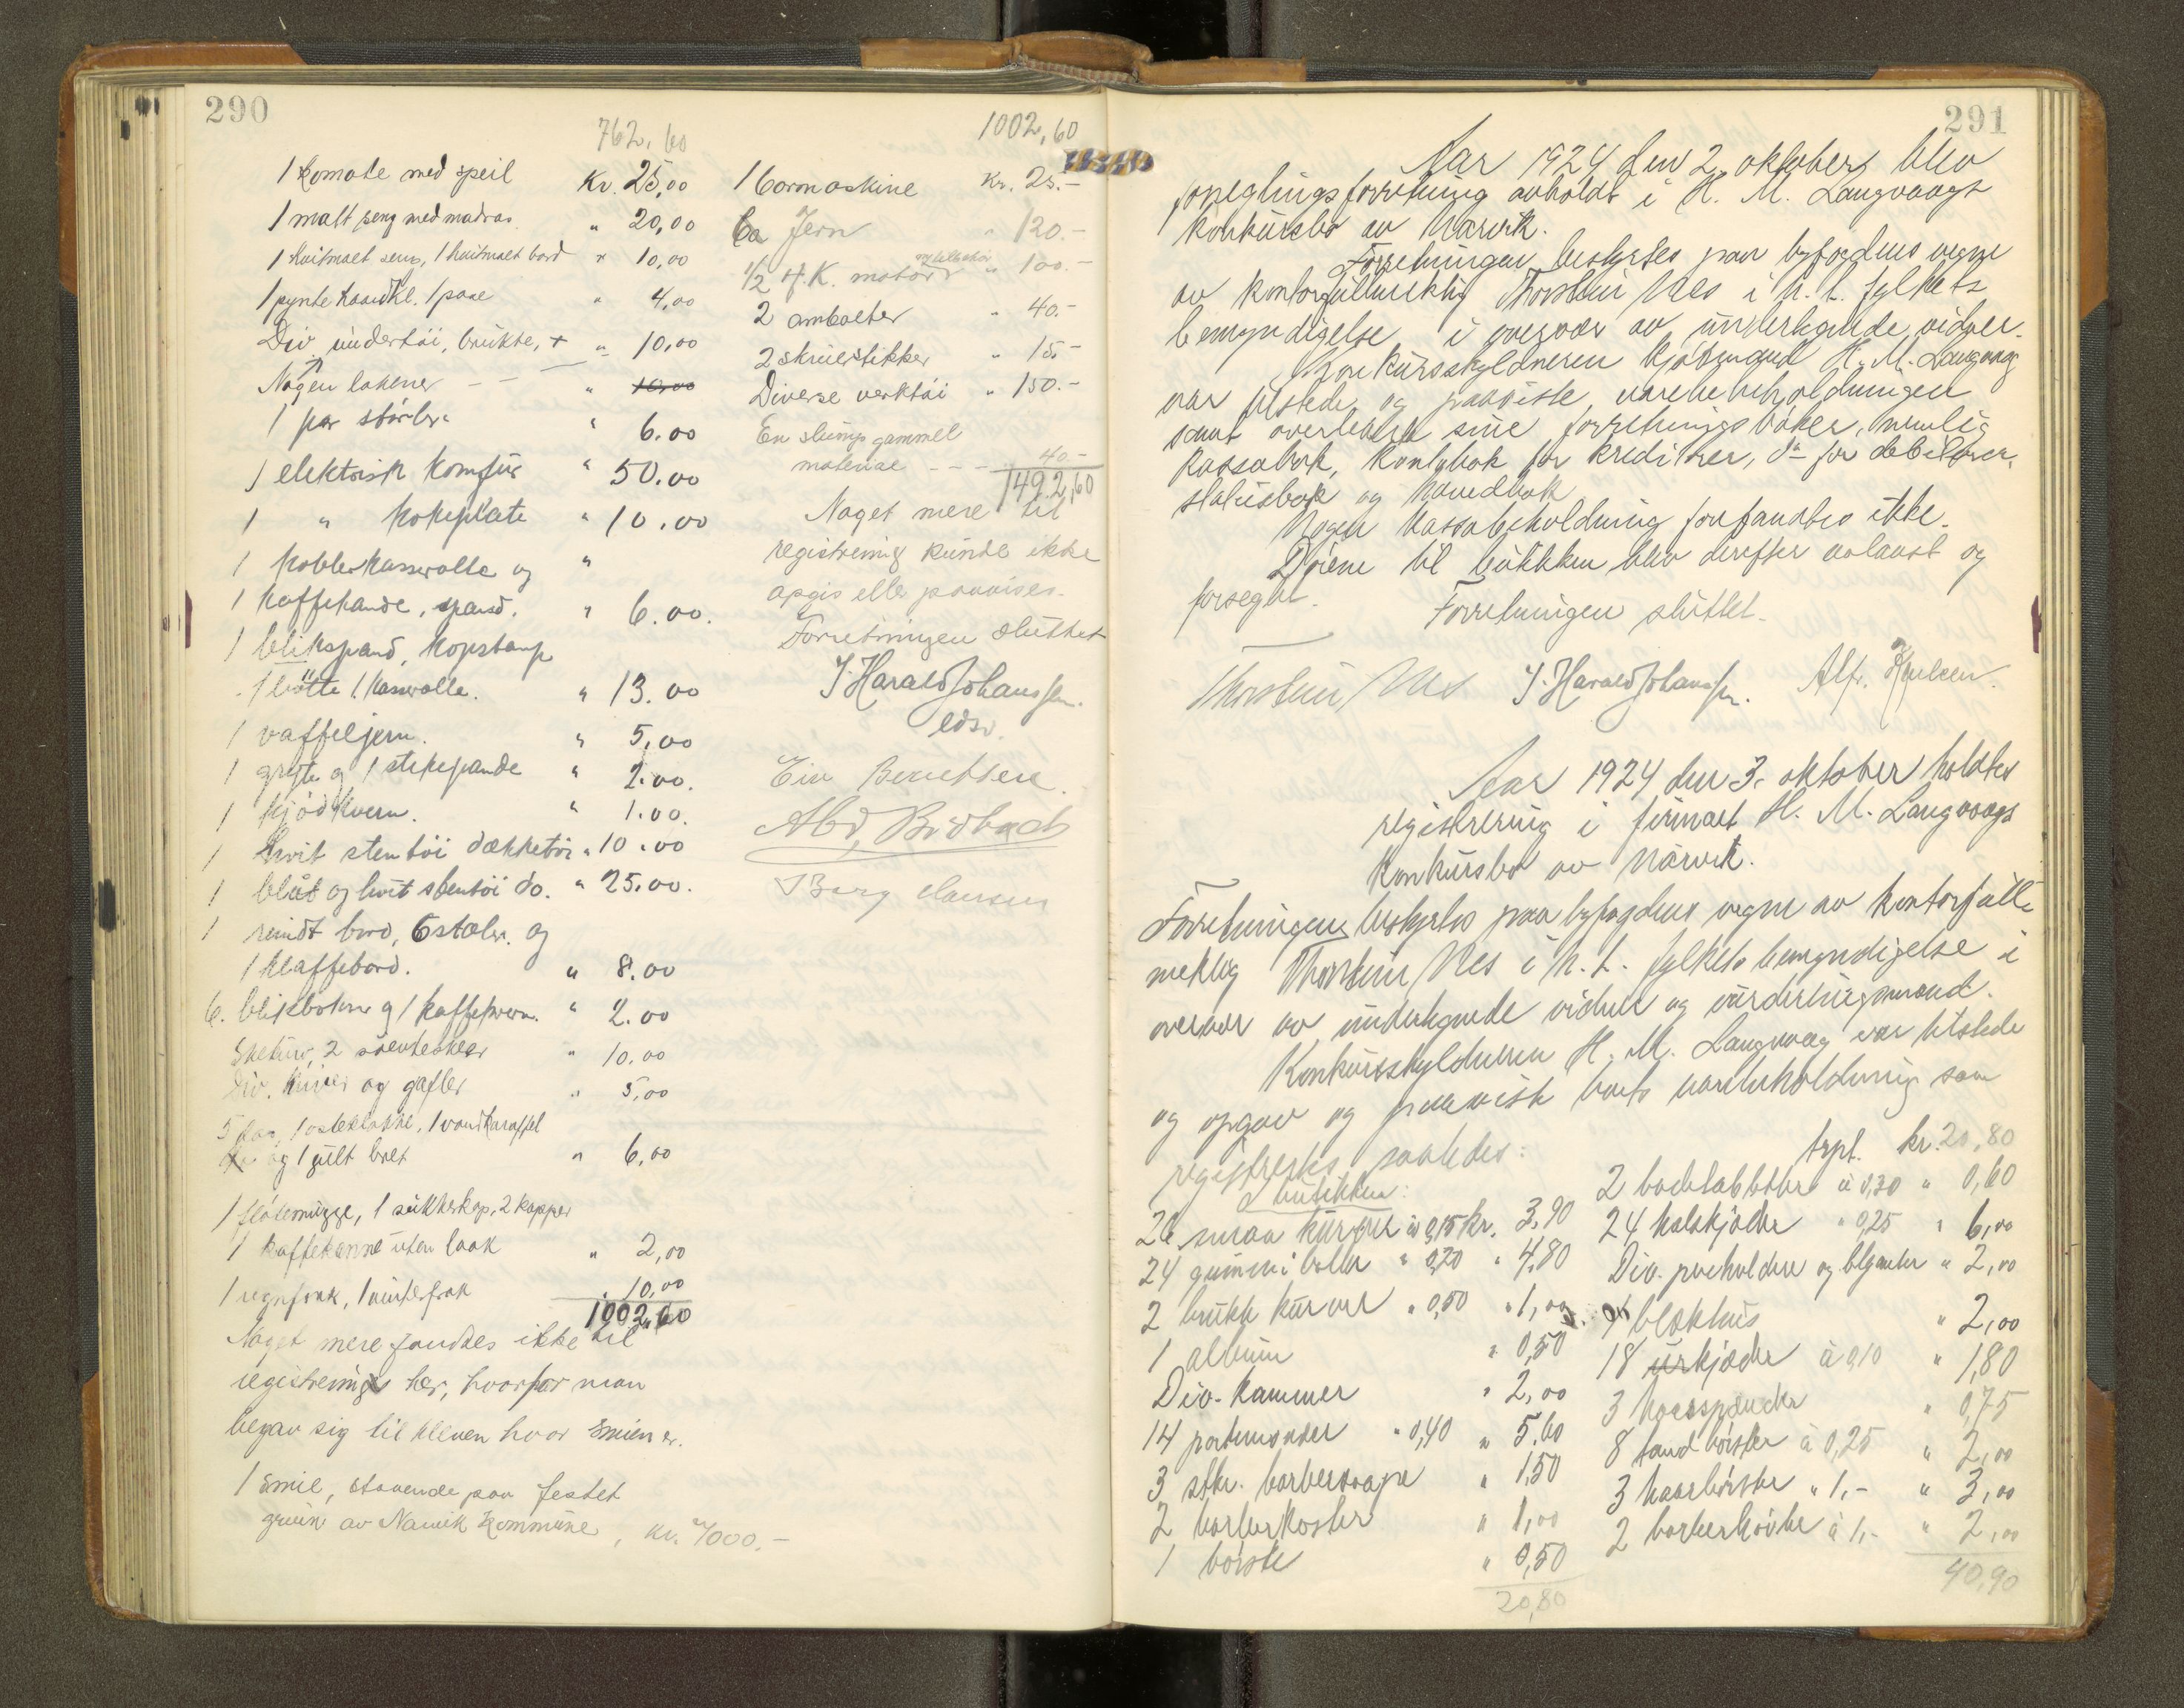 290
762,60
1 komode med speil Kr. 25,00
1 malt seng med madras " 20,00
1 hvitmalt seng, 1 hvitmalt bord " 10,00
1 pynte haandkl. 1 " 4,00
Div undertöi, brukte, + " 10,00
Nogen lakener - - " 10,00
1 par störler " 6.00
1 elektrisk komfür " 50.00
1 " kokeplate " 10.00
1 kobberkasserolle og "
1 kaffekande, spand. " 6.00.
1 blikspand, kopstamp
1 bötte 1 kasserolle. " 13.00
1 vaffeljern. " 5,00
1 gryte og 1 stekepande " 2.00.
1 kjödkvern. " 1.00.
1 hvit stentöi dækketöi " 10.00
1 blåt og hvit stentöi do. " 25.00.
1 rundt bord, 6 stoler og
1 klaffebord. " 8.00
6. blikbokser og 1 kaffekvern. " 2.00
2 " 10,00
Div. kniver og gafler " 5,00
5 1 osteklokke, 1 vandkaraffel
og 1 gult bret " 6,00
1 flötemugge, 1 sukkerkop, 2 kopper
1 kaffekanne uten laak " 2,00
1 regnfrak, 1 vinterfrak " 10,00
1002,60
Noget mere fandtes ikke til
registrering her, hvorfor man
begav sig til kleven hvor smien er.
1 smie, staaende paa festet
grund av Narvik Kommune, kr. 000.-
1002,60
1 bormaskine Kr. 25.-
Ca Jern " 120.-
m tilbehör
1/2 H.K. motor " 100.-
2 ambolter " 40.-
2 skruestikker " 15.-
Diverse verktöi " 150.-
En slump gammel
materiale - - - 40.-
1492,60
Noget mere til
registrering kunde ikke
opgis eller paavises.
Forretningen sluttet
J. Harald Johanssen.
edsv.
Eiv Berntsen.
Berg Hansen
291
Aar 1924 den 2. oktober blev
forseglingsforretning avholdt i H. M. Langvaags
konkursbo av Narvik.
Forretningen bestyrtes paa byfogdens vegne
av kontorfuldmektig Thorstein Nes i N. L. fylkets
bemyndigelse i overvær av underkgnede vidner.
Konkursskyldneren kjöbmand H. M. Langvaag
var tilstede og paaviste varebeholdningen
samt overleverte sine forretningsböker, nemlig
kassabok, kontobok for kreditorer, do for debitorer,
statusbok og hovedbok
Nogen kassabeholdning forefandtes ikke.
Dörene til butikken blev derefter avlaast og
forseglet. Forretningen sluttet.
Thorstein Nes J. Harald Johanssen. Alfr.
Aar 1924 den 3. oktober holdtes
registrering i firmaet H. M. Langvaags
konkursbo av Narvik.
Forretningen bestyrtes paa byfogdens vegne av kontorfuld-
mektig Thorstein Nes i N. L. fylkets bemyndigelse i
overvær av undertegnede vidner og vurderingsmænd.
Konkursskyldneren H. M. Langvaag var tilstede
og opgav og paaviste boets varebeholdning som
registrertes saaledes:
I butikken:
26 smaa kurver à 0,15 kr. 3,90
24 gummi boller " 0,20 " 4,80
2 brukk kurver " 0,50 " 1,00
1 album " 0,50
Div. kammer " 2,00
14 portmonäer " 0,40 " 5,60
3 stkr. barbersaape " 1,50
2 barberkoster " 1,00
1 börste " 0,50
20,80
trpt. kr. 20,80
2 à 0,30 " 0,60
24 halskjæder " 0,25 " 6,00
Div. og blyanter " 2,00
9 blækhus " 2,00
18 urkjæder à 0,10 " 1,80
3 haarspænder " 0,75
8 tandbörster à 0,25 " 2,00
3 haarbörster " 1,- " 3,00
2 barberhövler à 1,- " 2,00
40,90